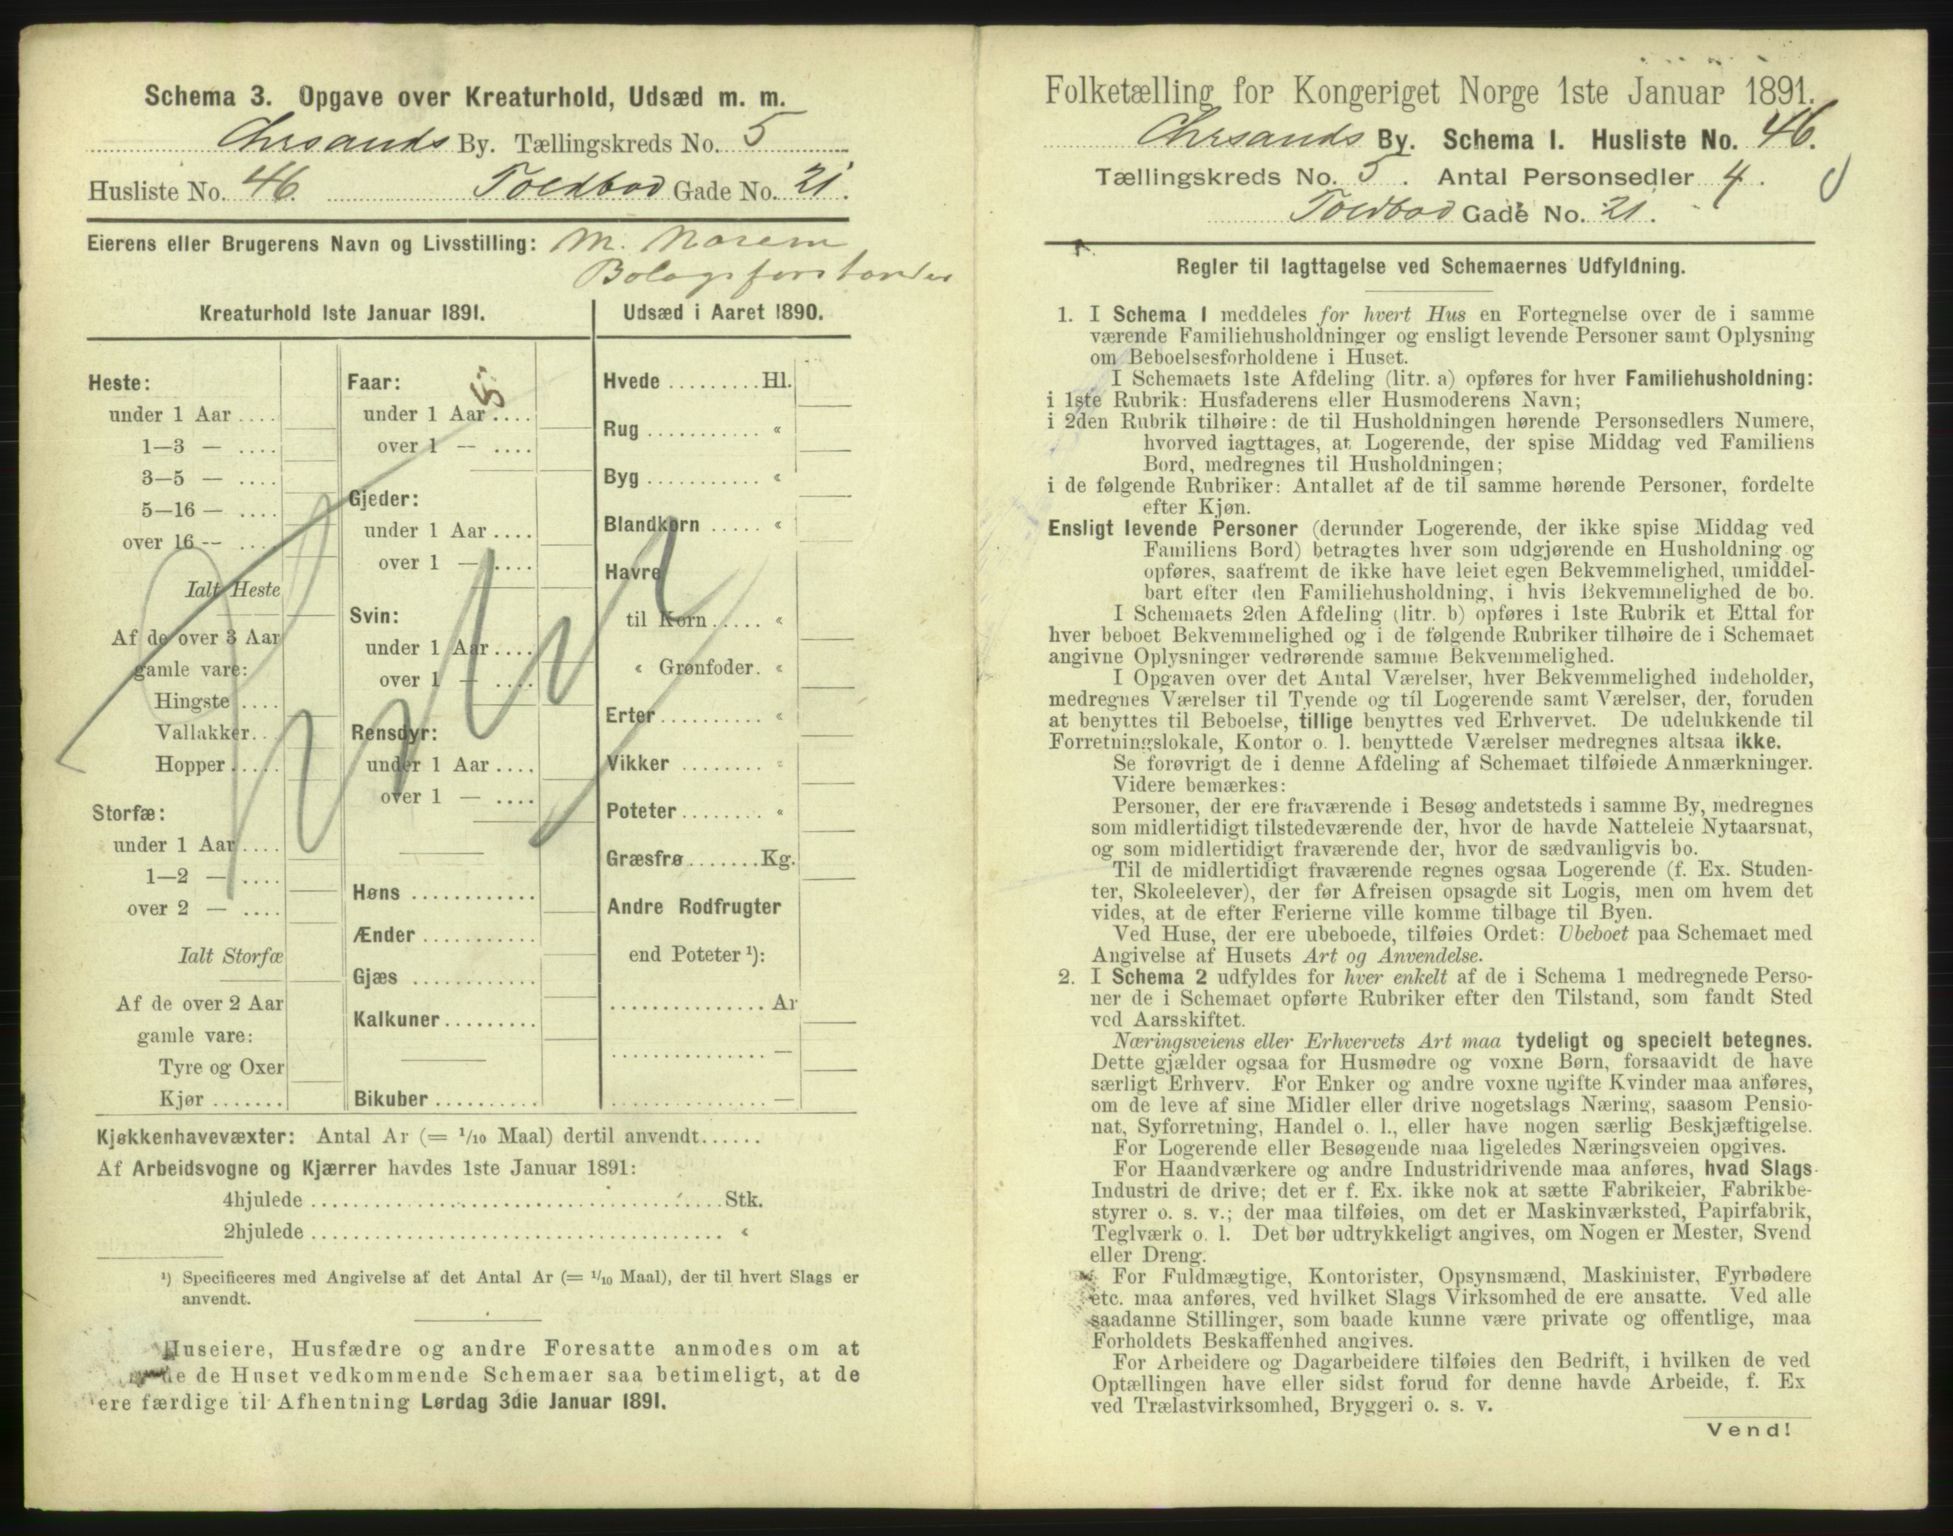 Schema 3. Opgave over Kreaturhold, Udsæd m. m.
Chrsands By. Tællingskreds No. 5
Husliste No. 46. Toldbod Gade No. 21.
Eierens eller Brugerens Navn og Livsstilling: M. Norem
Bolagsforstander
Kreaturhold 1ste Januar 1891.
Heste:
under 1 Aar ....
1—3 — ....
3—5 — ....
5—16 — ....
over 16 — ....
Ialt Heste
Af de over 3 Aar
gamle vare:
Hingste ....
Vallakker...
Hopper.....
Storfæ:
under 1 Aar....
1—2 — ....
over 2 — ....
Ialt Storfæ
Af de over 2 Aar
gamle vare:
Tyre og Oxer
Kjør .......
Faar:
5
under 1 Aar....
over 1 — ....
Gjeder:
under 1 Aar....
over 1 — ....
Svin:
under 1 Aar....
over 1 — ....
Rensdyr:
under 1 Aar ....
over 1 — ....
Høns ............
Ænder ...........
Gjæs ............
Kalkuner.........
Bikuber ..........
Udsæd i Aaret 1890.
Hvede .........Hl.
Rug ........... «
Byg ........... «
Blandkorn ..... «
Havre
til Korn ..... «
« Grønfoder. «
Erter.......... «
Vikker ........ «
Poteter........ «
Græsfrø.......Kg.
Andre Rodfrugter
end Poteter ¹):
...............Ar
...............—
...............—
Kjøkkenhavevæxter: Antal Ar (= 1/10 Maal) dertil anvendt......
Af Arbeidsvogne og Kjærrer havdes 1ste Januar 1891:
4hjulede ........................................Stk.
2hjulede ........................................ «
¹) Specificeres med Angivelse af det Antal Ar (= 1/10 Maal), der til hvert Slags er
anvendt.
Huseiere, Husfædre og andre Foresatte anmodes om at
de Huset vedkommende Schemaer saa betimeligt, at de
ere færdige til Afhentning Lørdag 3die Januar 1891.
Folketælling for Kongeriget Norge 1ste Januar 1891.
Chrsands By. Schema I. Husliste No. 46.
Tællingskreds No. 5. Antal Personsedler 4.
Toldbod Gade No. 21.
Regler til Iagttagelse ved Schemaernes Udfyldning.
1. I Schema I meddeles for hvert Hus en Fortegnelse over de i samme
værende Familiehusholdninger og ensligt levende Personer samt Oplysning
om Beboelsesforholdene i Huset.
I Schemaets 1ste Afdeling (litr. a) opføres for hver Familiehusholdning:
i 1ste Rubrik: Husfaderens eller Husmoderens Navn;
i 2den Rubrik tilhøire: de til Husholdningen hørende Personsedlers Numere,
hvorved iagttages, at Logerende, der spise Middag ved Familiens
Bord, medregnes til Husholdningen;
i de følgende Rubriker: Antallet af de til samme hørende Personer, fordelte
efter Kjøn.
Ensligt levende Personer (derunder Logerende, der ikke spise Middag ved
Familiens Bord) betragtes hver som udgjørende en Husholdning og
opføres, saafremt de ikke have leiet egen Bekvemmelighed, umiddel-
bart efter den Familiehusholdning, i hvis Bekvemmelighed de bo.
I Schemaets 2den Afdeling (litr. b) opføres i 1ste Rubrik et Ettal for
hver beboet Bekvemmelighed og i de følgende Rubriker tilhøire de i Schemaet
angivne Oplysninger vedrørende samme Bekvemmelighed.
I Opgaven over det Antal Værelser, hver Bekvemmelighed indeholder,
medregnes Værelser til Tyende og til Logerende samt Værelser, der, foruden
at benyttes til Beboelse, tillige benyttes ved Erhvervet. De udelukkende til
Forretningslokale, Kontor o. l. benyttede Værelser medregnes altsaa ikke.
Se forøvrigt de i denne Afdeling af Schemaet tilføiede Anmærkninger.
Videre bemærkes:
Personer, der ere fraværende i Besøg andetsteds i samme By, medregnes
som midlertidigt tilstedeværende der, hvor de havde Natteleie Nytaarsnat,
og som midlertidigt fraværende der, hvor de sædvanligvis bo.
Til de midlertidigt fraværende regnes ogsaa Logerende (f. Ex. Studen-
ter, Skoleelever), der før Afreisen opsagde sit Logis, men om hvem det
vides, at de efter Ferierne ville komme tilbage til Byen.
Ved Huse, der ere ubeboede, tilføies Ordet: Ubeboet paa Schemaet med
Angivelse af Husets Art og Anvendelse.
2. I Schema 2 udfyldes for hver enkelt af de i Schema 1 medregnede Perso-
ner de i Schemaet opførte Rubriker efter den Tilstand, som fandt Sted
ved Aarsskiftet.
Næringsveiens eller Erhvervets Art maa tydeligt og specielt betegnes.
Dette gjælder ogsaa for Husmødre og voxne Børn, forsaavidt de have
særligt Erhverv. For Enker og andre voxne ugifte Kvinder maa anføres,
om de leve af sine Midler eller drive nogetslags Næring, saasom Pensio-
nat, Syforretning, Handel o. l., eller have nogen særlig Beskjæftigelse.
For Logerende eller Besøgende maa ligeledes Næringsveien opgives.
For Haandværkere og andre Industridrivende maa anføres, hvad Slags
Industri de drive; det er f. Ex. ikke nok at sætte Fabrikeier, Fabrikbe-
styrer o. s. v.; der maa tilføies, om det er Maskinværksted, Papirfabrik,
Teglværk o. l. Det bør udtrykkeligt angives, om Nogen er Mester, Svend
eller Dreng.
For Fuldmægtige, Kontorister, Opsynsmænd, Maskinister, Fyrbødere
etc. maa anføres, ved hvilket Slags Virksomhed de ere ansatte. Ved alle
saadanne Stillinger, som baade kunne være private og offentlige, maa
Forholdets Beskaffenhed angives.
For Arbeidere og Dagarbeidere tilføies den Bedrift, i hvilken de ved
Optællingen have eller sidst forud for denne havde Arbeide, f. Ex
ved Trælastvirksomhed, Bryggeri o. s. v.
Vend!